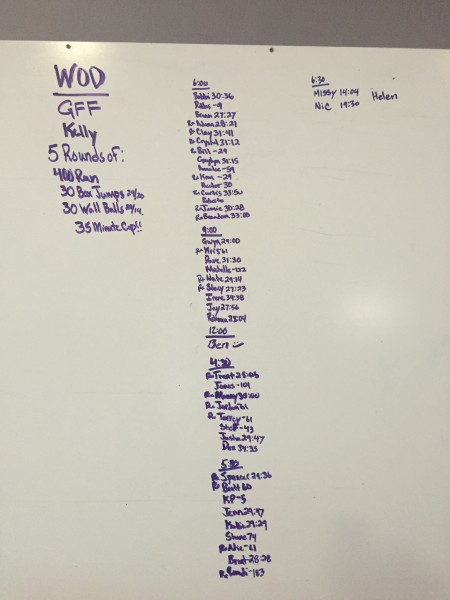 WOD
GFF
Kelly
5 Rounds of:
400 Run
30 Box Jumps 24/20
30 Wall Balls 20/14
35 Minute Cap!!
6:00
Bobbi 30:36
27:27
28:21
Rx Clay 31:41
Rx Crystal 31:12
Rx Bill - 29
31:15
- 59
- 29
30
Rx Curtis 33:50
Rx Jamie 30:28
Rx Brandon 33:00
9:00
Gwyn 29:00
Dave 31:30
Michelle - 122
Rx Nate 29:14
Rx Stacy 27:23
Irene 34:38
Jay 27:56
Rebecca 25:04
12:00
Ben
4:30
Rx Trent 28:08
Jones - 101
Rx Jordan 61
Rx Torrey - 61
Steff - 43
29:47
34:35
5:30
Rx Spencer 29:36
Rx Brett 60
KP - 5
Jenn 29:47
Katie 29:29
Shane 74
- 61
Brent 28:28
- 153
6:30
Missy 14:04
Nic 19:30
Helen